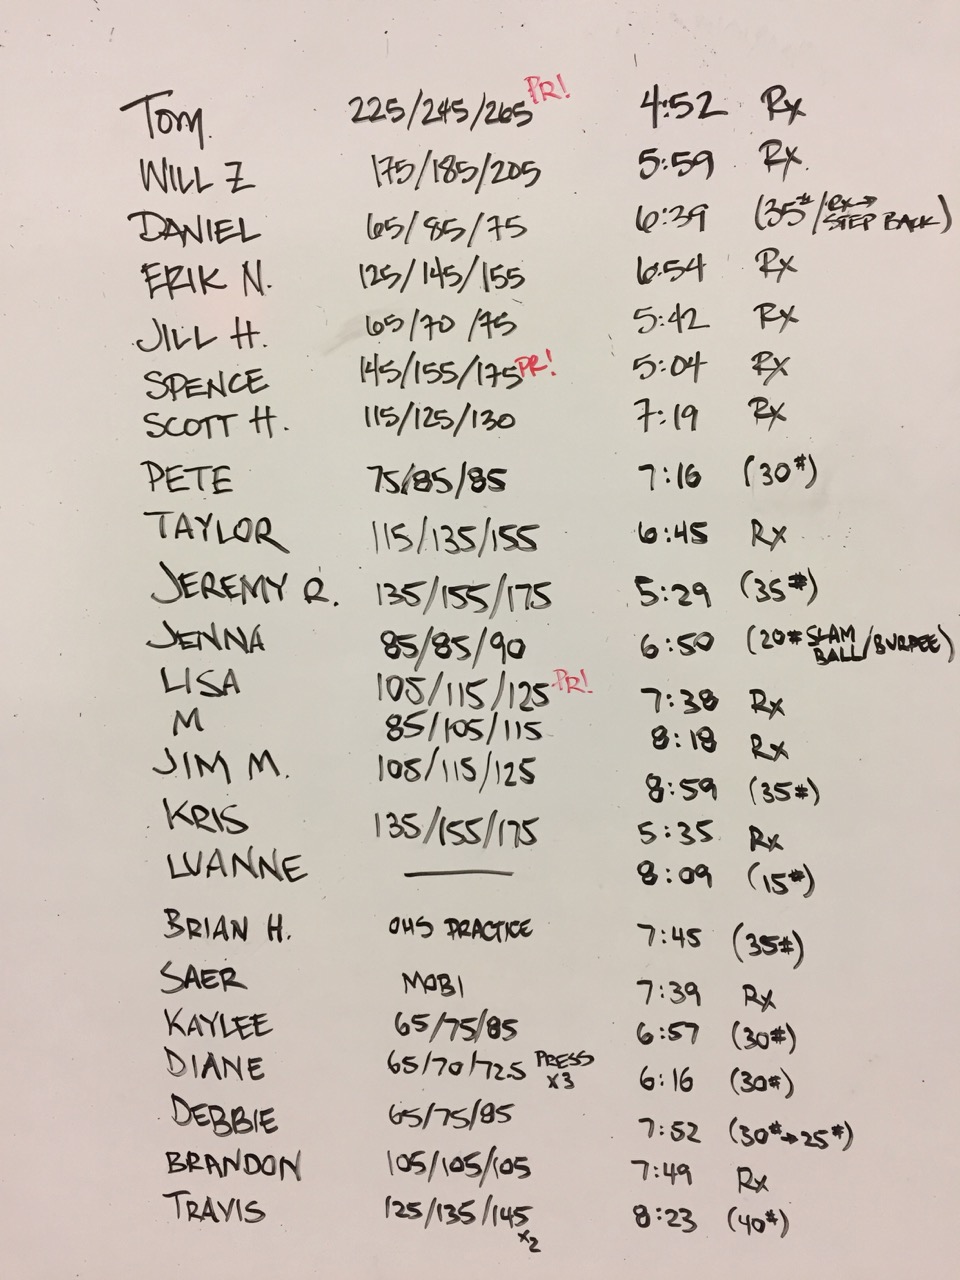 Tom. 225/245/265 PR! 4:52 Rx
WILL Z 175/185/205 5:59 Rx.
DANIEL 65/85/75 6:39 (35#/ STEP BACK)
ERIK N. 125/145/155 6:54 Rx
JILL H. 65/70/75 5:42 Rx
SPENCE 145/155/175 PR! 5:04 Rx
SCOTT H. 115/125/130 7:19 Rx
PETE 75/85/85 7:16 (30#)
TAYLOR 115/135/155 6:45 Rx
JEREMY R. 135/155/175 5:29 (35#)
JENNA 85/85/90 6:50 (20# SLAM BALL/BURPEE)
LISA 105/115/125 PR! 7:38 Rx
M 85/105/115 8:18 Rx
JIM M. 105/115/125 8:59 (35#)
KRIS 135/155/175 5:35 Rx
LUANNE — 8:09 (15#)
BRIAN H. OHS PRACTICE 7:45 (35#)
SAER MOBI 7:39 Rx
KAYLEE 65/75/85 6:57 (30#)
DIANE 65/70/725 PRESS x3 6:16 (30#)
DEBBIE 65/75/85 7:52 (30#→25#)
BRANDON 105/105/105 7:49 Rx
TRAVIS 125/135/145 x2 8:23 (40#)